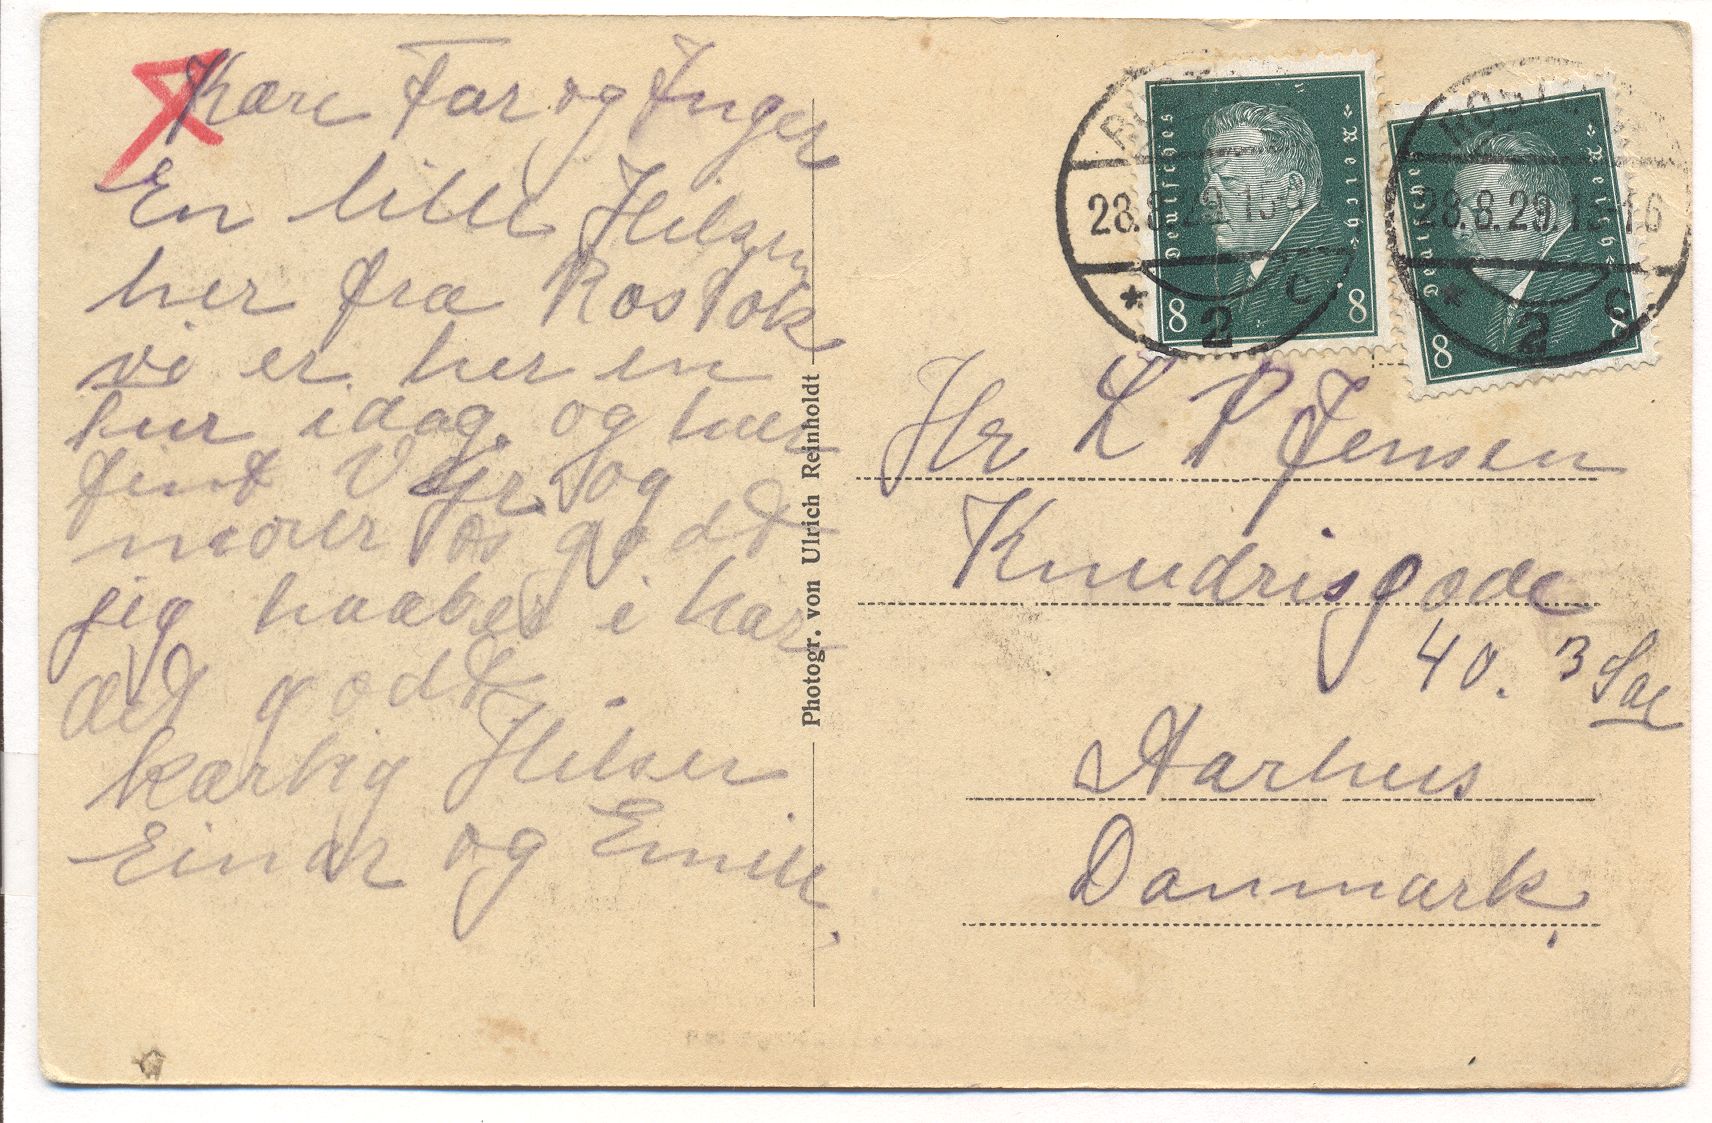 Kære Far og Inger
En lille Hilsen
her fra Rostok
vi er her en
tur idag. og har
fint Vejr. og
morer os godt
jeg haaber i har
det godt.
kærlig Hilsen
Einar og Emilie
Photogr. von Ulrich Reinholdt
Deutsches Reich
8 8
28.8.29.15-
* 2 c
Deutsches Reich
8 8
ROSTOCK
28.8.29.15-16
* 2 c
Hr L P Jensen
Knudrisgade
40. 3 Sal
Aarhus
Danmark